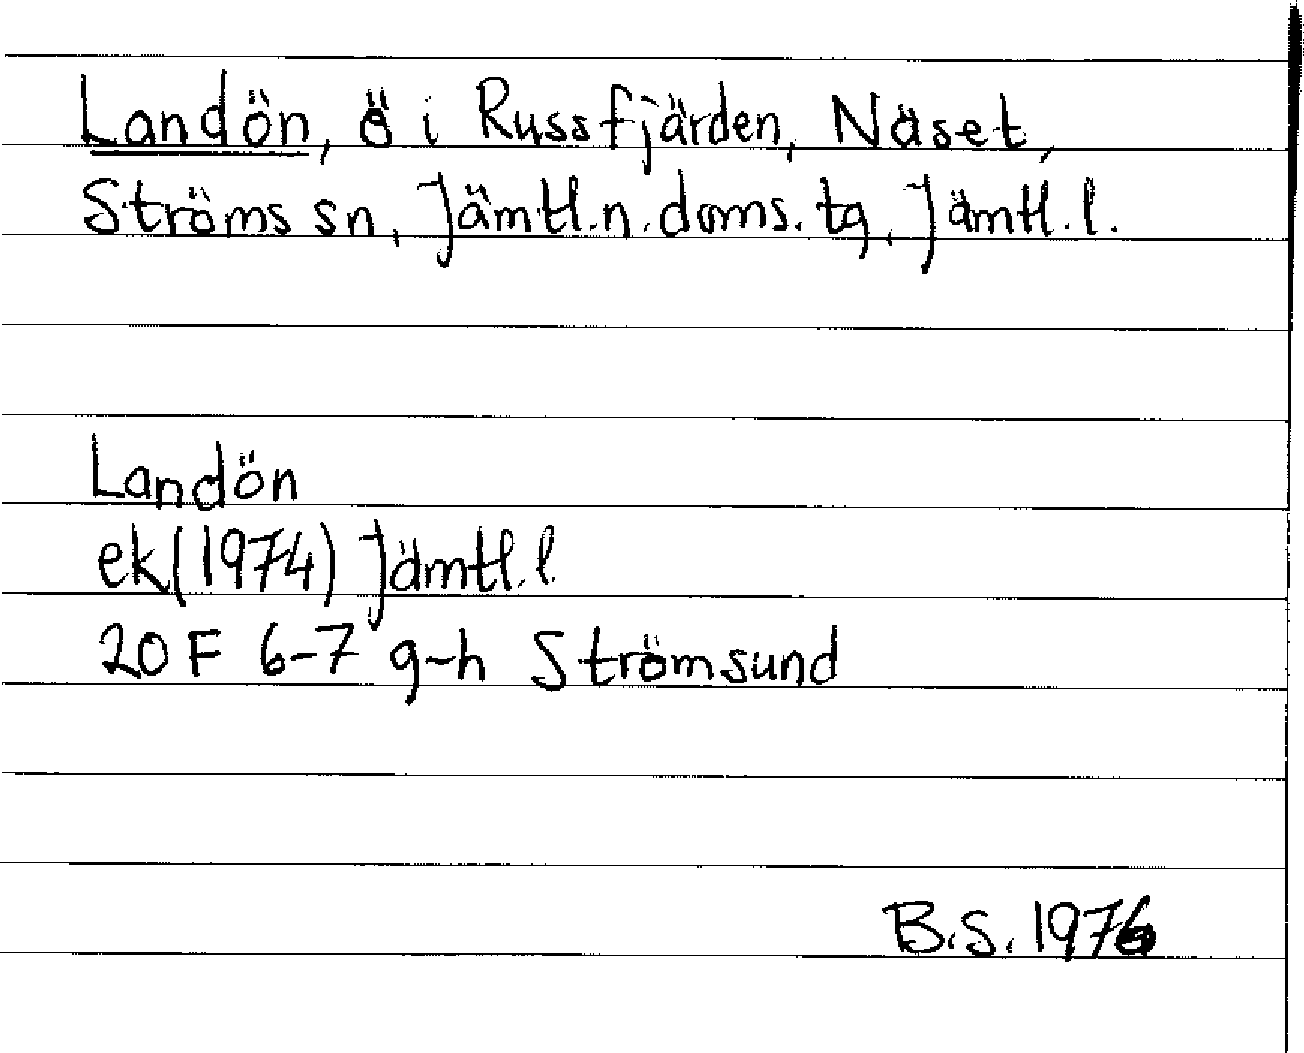 Landön, ö i Russfjärden, Näset,
Ströms sn, Jämtl.n.doms.tg, Jämtl.l.
Landön
ek(1974) Jämtl.l.
20 F 6-7 g-h Strömsund
B.S. 1976